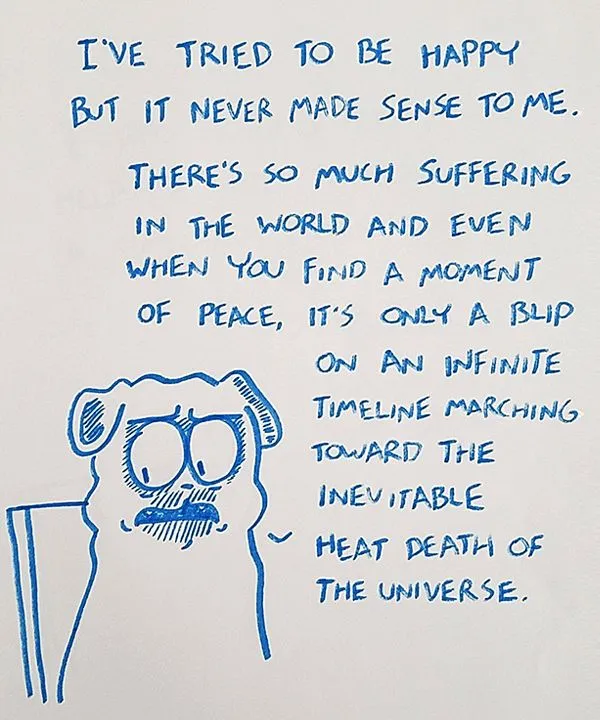 I'VE TRIED TO BE HAPPY
BUT IT NEVER MADE SENSE TO ME.
THERE'S SO MUCH SUFFERING
IN THE WORLD AND EVEN
WHEN YOU FIND A MOMENT
OF PEACE, IT'S ONLY A BLIP
ON AN INFINITE
TIMELINE MARCHING
TOWARD THE
INEVITABLE
HEAT DEATH OF
THE UNIVERSE.